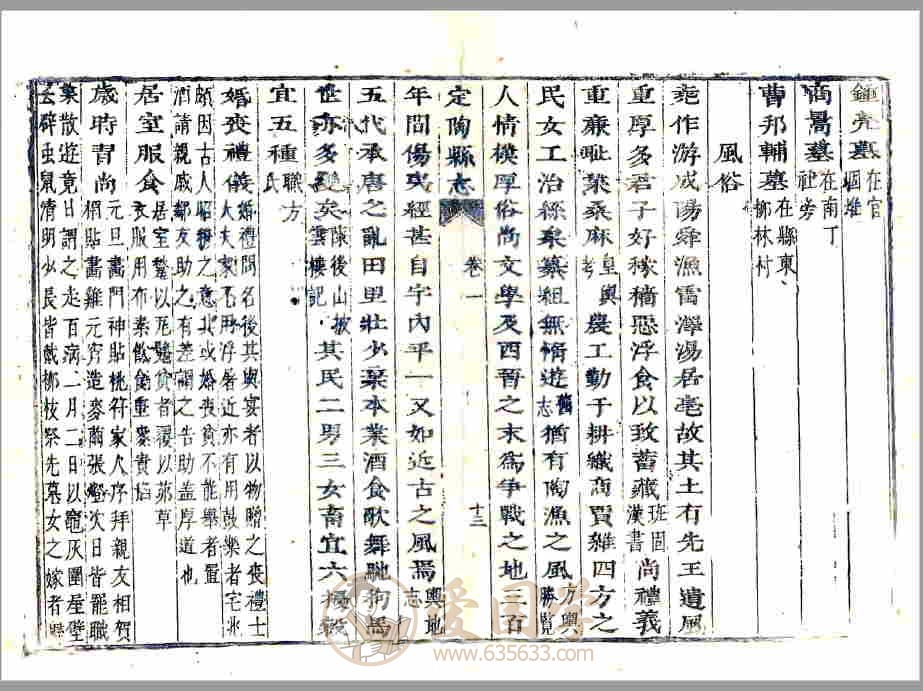 鍾亮墓在官堌堆
商暠墓在南丁社旁
曹邦輔墓在縣東柳林村
風俗
堯作游成陽舜漁雷澤湯居亳故其土有先王遺風
重厚多君子好稼穡惡浮食以致蓄藏班固漢書尚禮義
重廉耻業桑麻皇輿考農工勤于耕織商賈雜四方之
民女工治絲枲纂組無惰遊舊志猶有陶漁之風方輿勝覽
人情樸厚俗尚文學及西晋之末為爭戰之地三百
定陶縣志 卷一 十三
年間傷夷經甚自宇內平一又如近古之風焉輿地志
五代承唐之亂田里壯少棄本業酒食歌舞馳狗馬
世亦多變矣陳後山披雲樓記其民二男三女畜宜六擾穀
宜五種職方氏
婚喪禮儀婚禮問名後其輿宴者以物贈之喪禮士
大夫家不用浮屠近亦有用鼓樂者宅兆
頗因古人昭穆之意北或婚喪貧不能舉者置
酒請親戚鄰友助之有差謂之告助盖厚道也
居室服食居室甃以瓦甓貧者覆以茅草
衣服用布素飲食重麥貴
歲時習尚元旦畵門神貼桃符家人序拜親友相賀
貼畵雞元宵造麥繭張燈次日皆罷職
業散遊竟日謂之走百病二月二日以竈灰圍屋壁
去碎虫鼠清明少長皆戴柳枝祭先墓女之嫁者歸
愛国学
www.635633.com